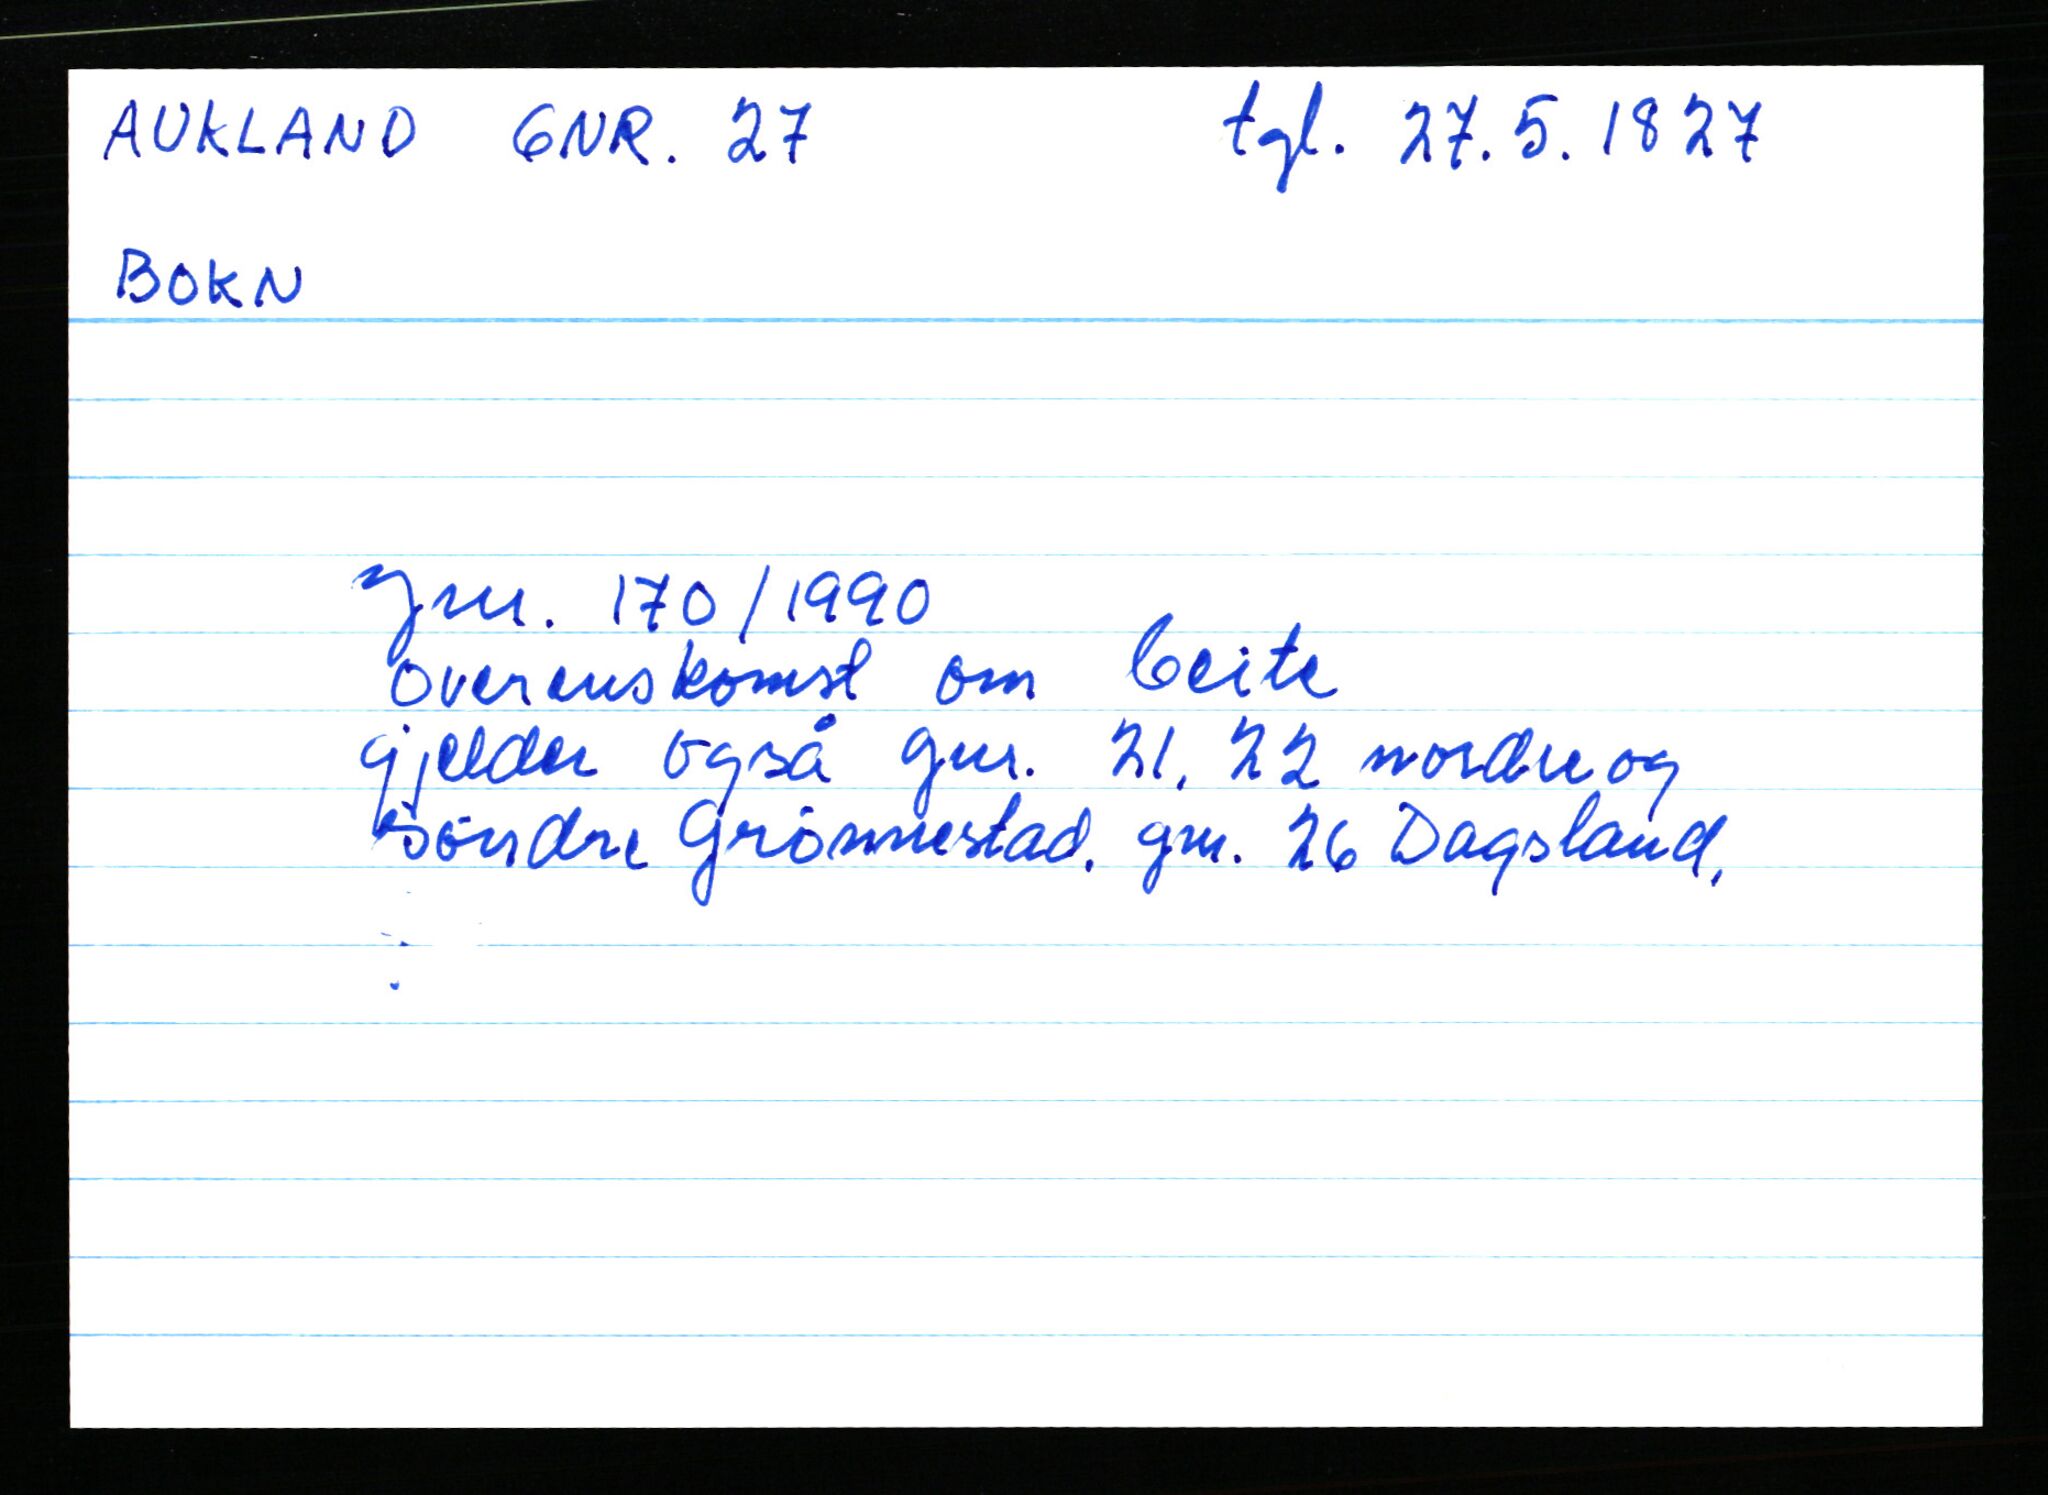 AUKLAND GNR. 27 tgl. 27.5.1827
BOKN
gnr. 170/1990
overenskomst om beite
gjelder også gnr. 21, 22 nordre og
söndre Grönnestad. gnr. 26 Dagsland.